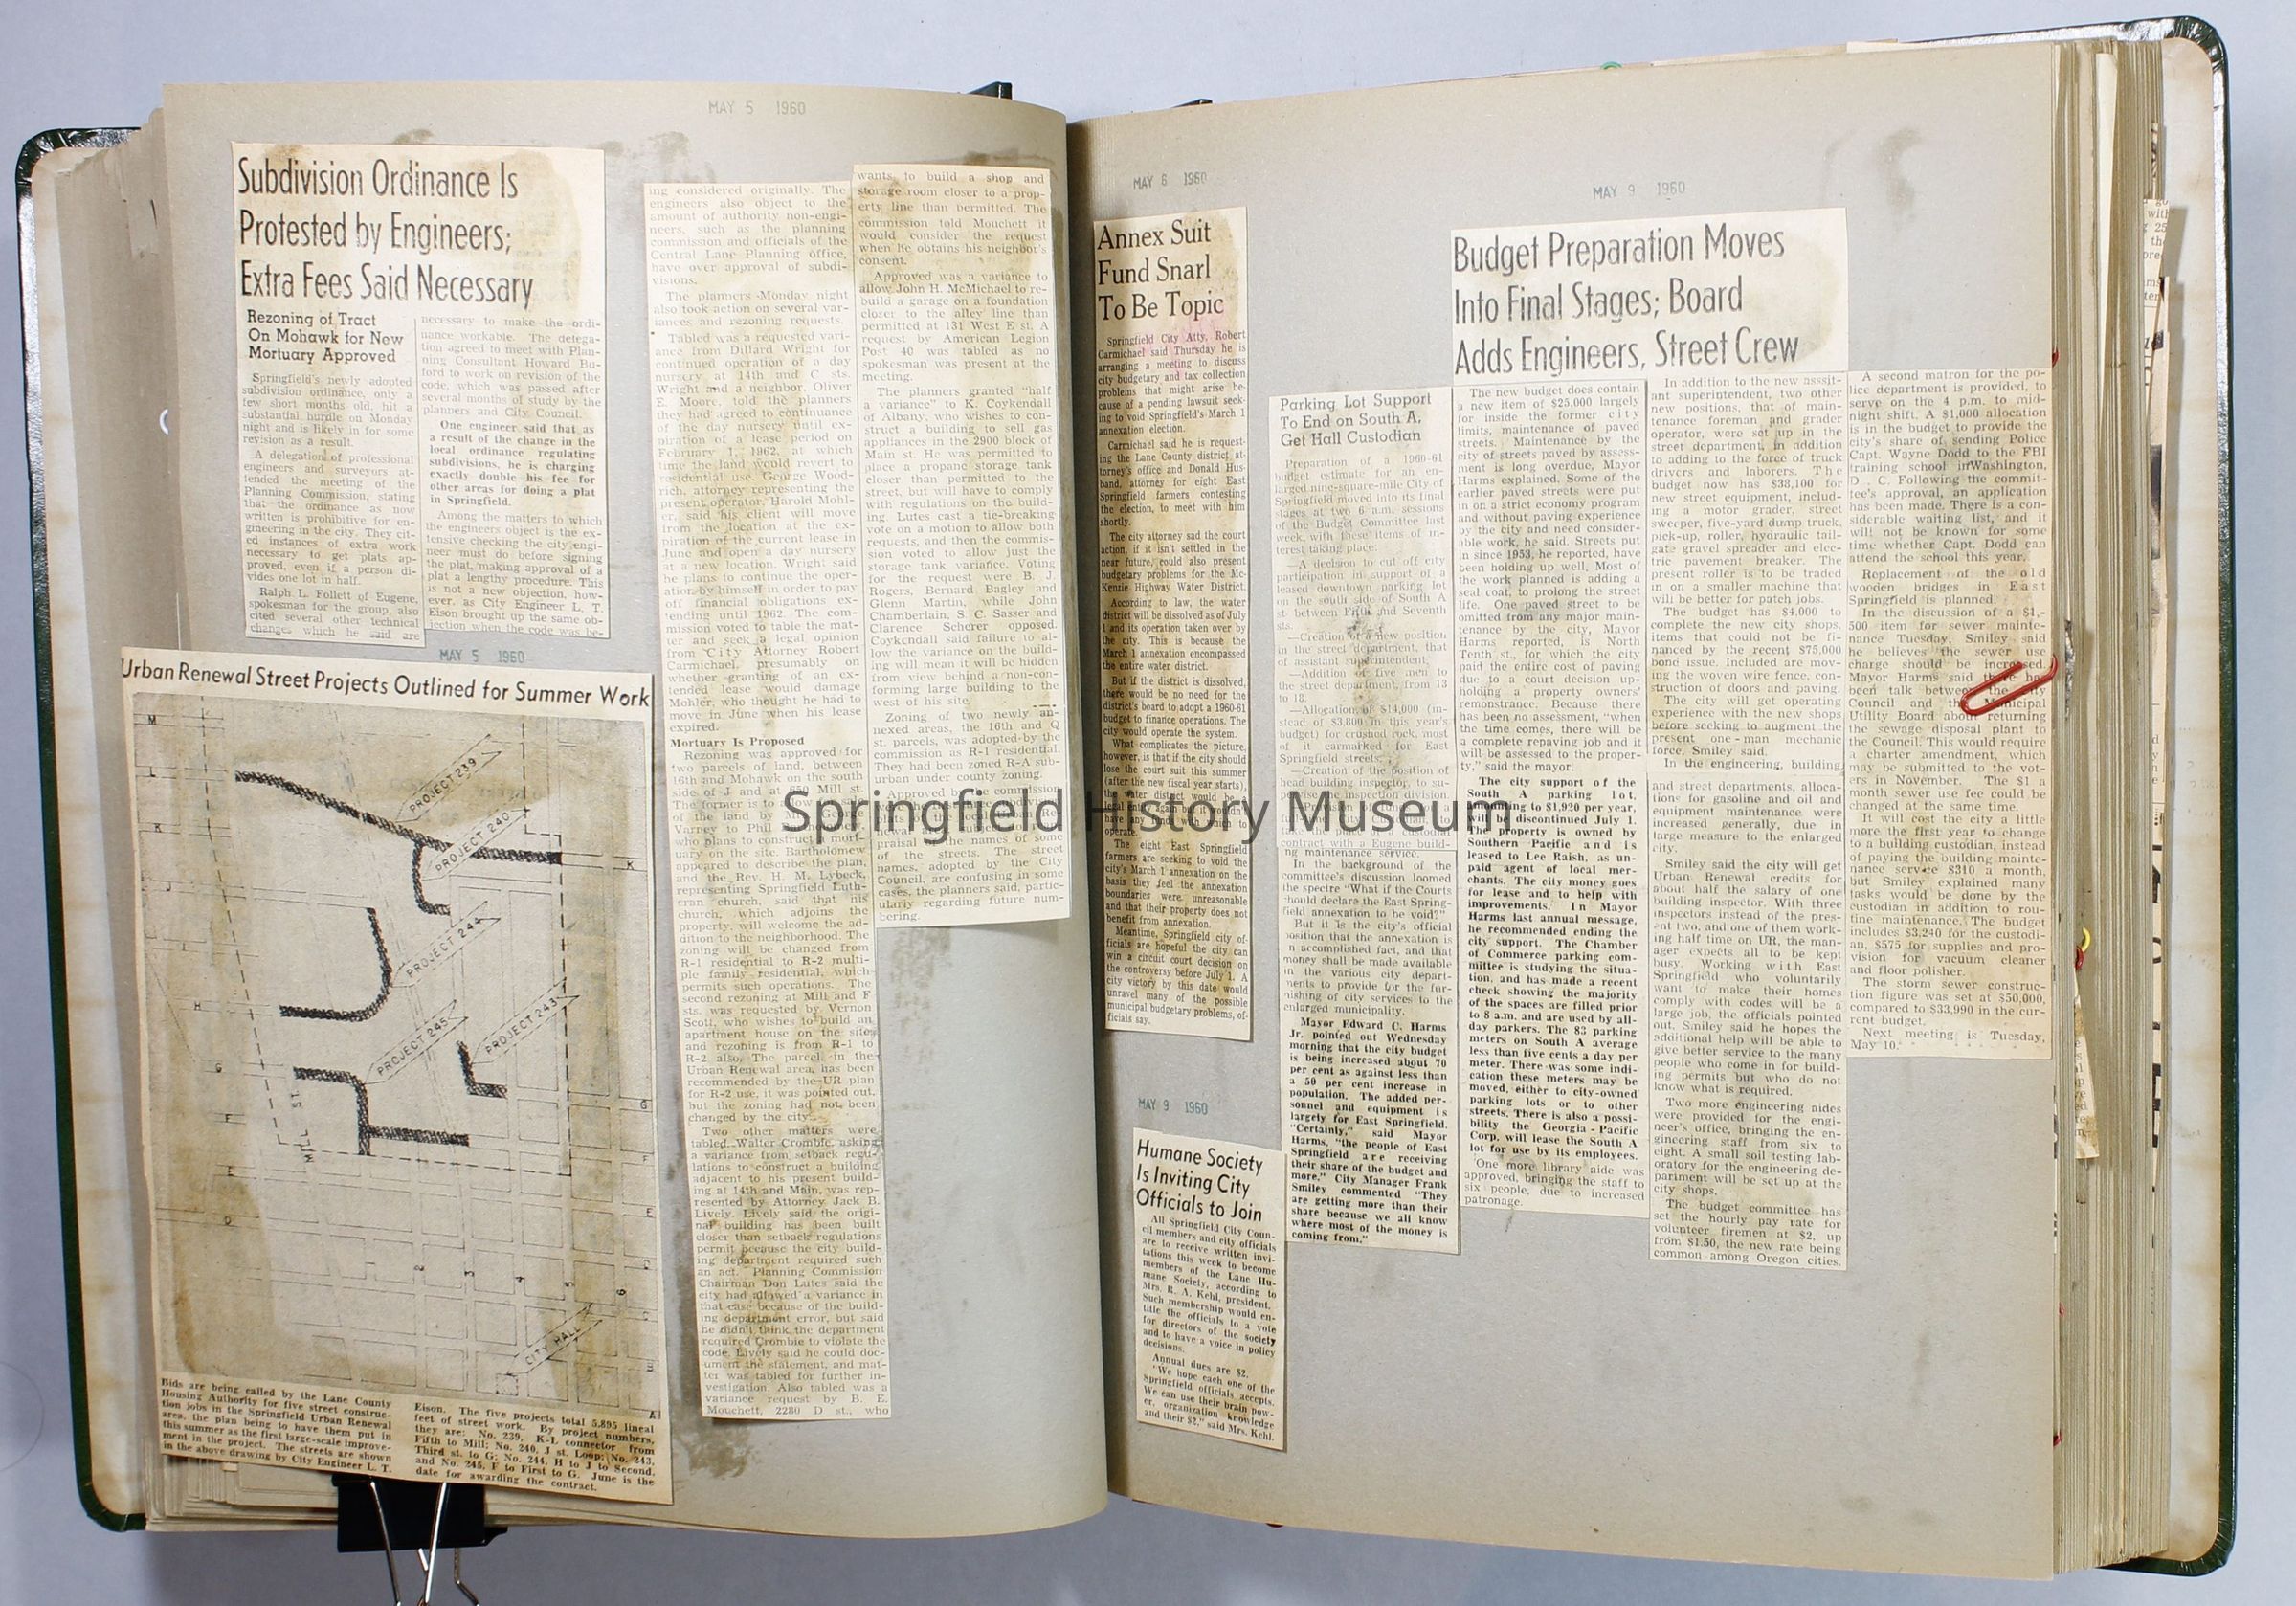 MAY 5 1960
Subdivision Ordinance Is
Protested by Engineers;
Extra Fees Said Necessary
Rezoning of Tract
On Mohawk for New
Mortuary Approved
Springfield's newly adopted
subdivision ordinance, only a
few short months old, hit a
substantial hurdle on Monday
night and is likely in for some
revision as a result.
A delegation of professional
engineers and surveyors at-
tended the meeting of the
Planning Commission, stating
that the ordinance as now
written is prohibitive for en-
gineering in the city. They cit-
ed instances of extra work
necessary to get plats ap-
proved, even if a person di-
vides one lot in half.
Ralph L. Follett of Eugene,
spokesman for the group, also
cited several other technical
changes which he said are
necessary to make the ordi-
nance workable. The delega-
tion agreed to meet with Plan-
ning Consultant Howard Bu-
ford to work on revision of the
code, which was passed after
several months of study by the
planners and City Council.
One engineer said that as
a result of the change in the
local ordinance regulating
subdivisions, he is charging
exactly double his fee for
other areas for doing a plat
in Springfield.
Among the matters to which
the engineers object is the ex-
tensive checking the city engi-
neer must do before signing
the plat, making approval of a
plat a lengthy procedure. This
is not a new objection, how-
ever, as City Engineer L. T.
Eison brought up the same ob-
jection when the code was be-
ing considered originally. The
engineers also object to the
amount of authority non-engi-
neers, such as the planning
commission and officials of the
Central Lane Planning office,
have over approval of subdi-
visions.
The planners Monday night
also took action on several var-
iances and rezoning requests.
Tabled was a requested vari-
ance from Dillard Wright for
continued operation of a day
nursery at 14th and C sts.
Wright and a neighbor, Oliver
E. Moore, told the planners
they had agreed to continuance
of the day nursery until ex-
piration of a lease period on
February 1, 1962, at which
time the land would revert to
residential use. George Wood-
rich, attorney representing the
present operator, Harold Mohl-
er, said his client will move
from the location at the ex-
piration of the current lease in
June and open a day nursery
at a new location. Wright said
he plans to continue the oper-
ation by himself in order to pay
off financial obligations ex-
tending until 1962. The com-
mission voted to table the mat-
ter and seek a legal opinion
from City Attorney Robert
Carmichael, presumably on
whether granting of an ex-
tended lease would damage
Mohler, who thought he had to
move in June when his lease
expired.
Mortuary Is Proposed
Rezoning was approved for
two parcels of land, between
16th and Mohawk on the south
side of J and at Mill st.
The former is to
of the land by
Varney to Phil
who plans to construct a mort-
uary on the site. Bartholomew
appeared to describe the plan,
and the Rev. H. M. Lybeck,
representing Springfield Luth-
eran church, said that his
church, which adjoins the
property, will welcome the ad-
dition to the neighborhood. The
zoning will be changed from
R-1 residential to R-2 multi-
ple family residential, which
permits such operations. The
second rezoning at Mill and F
sts. was requested by Vernon
Scott, who wishes to build an
apartment house on the site
and rezoning is from R-1 to
R-2 also. The parcel, in the
Urban Renewal area, has been
recommended by the UR plan
for R-2 use, it was pointed out,
but the zoning had not been
changed by the city.
Two other matters were
tabled. Walter Crombie, asking
a variance from setback regu-
lations to construct a building
adjacent to his present build-
ing at 14th and Main, was rep-
resented by Attorney Jack B.
Lively. Lively said the origi-
nal building has been built
closer than setback regulations
permit because the city build-
ing department required such
an act. Planning Commission
Chairman Don Lutes said the
city had allowed a variance in
that case because of the build-
ing department error, but said
he didn't think the department
required Crombie to violate the
code. Lively said he could doc-
ument the statement, and mat-
ter was tabled for further in-
vestigation. Also tabled was a
variance request by B. E.
Mouchett, 2280 D st., who
wants to build a shop and
storage room closer to a prop-
erty line than permitted. The
commission told Mouchett it
would consider the request
when he obtains his neighbor's
consent.
Approved was a variance to
allow John H. McMichael to re-
build a garage on a foundation
closer to the alley line than
permitted at 131 West E st. A
request by American Legion
Post 40 was tabled as no
spokesman was present at the
meeting.
The planners granted "half
a variance" to K. Coykendall
of Albany, who wishes to con-
struct a building to sell gas
appliances in the 2900 block of
Main st. He was permitted to
place a propane storage tank
closer than permitted to the
street, but will have to comply
with regulations on the build-
ing. Lutes cast a tie-breaking
vote on a motion to allow both
requests, and then the commis-
sion voted to allow just the
storage tank variance. Voting
for the request were B. J.
Rogers, Bernard Bagley and
Glenn Martin, while John
Chamberlain, S. C. Sasser and
Clarence Scherer opposed.
Coykendall said failure to al-
low the variance on the build-
ing will mean it will be hidden
from view behind a non-con-
forming large building to the
west of his site.
Zoning of two newly an-
nexed areas, the 16th and Q
st. parcels, was adopted by the
commission as R-1 residential.
They had been zoned R-A sub-
urban under county zoning.
Approved by the commission
praisal of the names of some
of the streets. The street
names, adopted by the City
Council, are confusing in some
cases, the planners said, partic-
ularly regarding future num-
bering.
MAY 5 1960
Urban Renewal Street Projects Outlined for Summer Work
PROJECT 239
PROJECT 240
PROJECT 244
PROJECT 245
PROJECT 243
MILL ST.
CITY HALL
M
L
K
J
H
G
F
E
D
K
G
F
E
D
C
B
A
2
3
4
5
6
Bids are being called by the Lane County
Housing Authority for five street construc-
tion jobs in the Springfield Urban Renewal
area, the plan being to have them put in
this summer as the first large-scale improve-
ment in the project. The streets are shown
in the above drawing by City Engineer L. T.
Eison. The five projects total 5,895 lineal
feet of street work. By project numbers,
they are: No. 239, K-L connector from
Fifth to Mill; No. 240, J st. Loop; No. 243,
Third st. to G; No. 244, H to J to Second,
and No. 245, F to First to G. June is the
date for awarding the contract.
MAY 6 1960
Annex Suit
Fund Snarl
To Be Topic
Springfield City Atty. Robert
Carmichael said Thursday he is
arranging a meeting to discuss
city budgetary and tax collection
problems that might arise be-
cause of a pending lawsuit seek-
ing to void Springfield's March 1
annexation election.
Carmichael said he is request-
ing the Lane County district at-
torney's office and Donald Hus-
band, attorney for eight East
Springfield farmers contesting
the election, to meet with him
shortly.
The city attorney sad the court
action, if it isn't settled in the
near future, could also present
budgetary problems for the Mc-
Kenzie Highway Water District.
According to law, the water
district will be dissolved as of July
1 and its operation taken over by
the city. This is because the
March 1 annexation encompassed
the entire water district.
But if the district is dissolved,
there would be no need for the
district's board to adopt a 1960-61
budget to finance operations. The
city would operate the system.
What complicates the picture,
however, is that if the city should
lose the court suit this summer
(after the new fiscal year starts),
the water district would be a
legal entity again but wouldn't
have any legal budget to
operate.
The eight East Springfield
farmers are seeking to void the
city's March 1 annexation on the
basis they feel the annexation
boundaries were unreasonable
and that their property does not
benefit from annexation.
Meantime, Springfield city of-
ficials are hopeful the city can
win a circuit court decision on
the controversy before July 1. A
city victory by this date would
unravel many of the possible
municipal budgetary problems, of-
ficials say.
MAY 9 1960
Humane Society
Is Inviting City
Officials to Join
All Springfield City Coun-
cil members and city officials
are to receive written invi-
tations this week to become
members of the Lane Hu-
mane Society, according to
Mrs. R. A. Kehl, president.
Such membership would en-
title the officials to a vote
for directors of the society
and to have a voice in policy
decisions.
Annual dues are $2.
"We hope each one of the
Springfield officials accepts.
We can use their brain pow-
er, organization knowledge
and their $2," said Mrs. Kehl.
MAY 9 1960
Budget Preparation Moves
Into Final Stages; Board
Adds Engineers, Street Crew
Parking Lot Support
To End on South A,
Get Hall Custodian
Preparation of a 1960-61
budget estimate for an en-
larged nine-square-mile City of
Springfield moved into its final
stages at two 6 a.m. sessions
of the Budget Committee last
week, with these items of in-
terest taking place:
—A decision to cut off city
participation in support of a
leased downtown parking lot
on the south side of South A
st. between Fifth and Seventh
sts.
—Creation of a new position
in the street department, that
of assistant superintendent.
—Addition of five men to
the street department, from 13
to 18.
—Allocation of $14,000 (in-
stead of $3,800 in this year's
budget) for crushed rock, most
of it earmarked for East
Springfield streets.
—Creation of the position of
head building inspector, to su-
pervise the inspection division.
contract with a Eugene build-
ing maintenance service.
In the background of the
committee's discussion loomed
the spectre "What if the Courts
should declare the East Spring-
field annexation to be void?"
But it is the city's official
position that the annexation is
n accomplished fact, and that
money shall be made available
in the various city depart-
ments to provide for the fur-
nishing of city services to the
enlarged municipality.
Mayor Edward C. Harms
Jr. pointed out Wednesday
morning that the city budget
is being increased about 70
per cent as against less than
a 50 per cent increase in
population. The added per-
sonnel and equipment is
largely for East Springfield.
"Certainly," said Mayor
Harms, "the people of East
Springfield are receiving
their share of the budget and
more," City Manager Frank
Smiley commented "They
are getting more than their
share because we all know
where most of the money is
coming from."
The new budget does contain
a new item of $25,000 largely
for inside the former city
limits, maintenance of paved
streets. Maintenance by the
city of streets paved by assess-
ment is long overdue, Mayor
Harms explained. Some of the
earlier paved streets were put
in on a strict economy program
and without paving experience
by the city and need consider-
able work, he said. Streets put
in since 1953, he reported, have
been holding up well. Most of
the work planned is adding a
seal coat, to prolong the street
life. One paved street to be
omitted from any major main-
tenance by the city, Mayor
Harms reported, is North
Tenth st., for which the city
paid the entire cost of paving
due to a court decision up-
holding a property owners'
remonstrance. Because there
has been no assessment, "when
the time comes, there will be
a complete repaving job and it
will be assessed to the proper-
ty," said the mayor.
The city support of the
South A parking lot,
amounting to $1,920 per year,
will be discontinued July 1.
The property is owned by
Southern Pacific and is
leased to Lee Raish, as un-
paid agent of local mer-
chants. The city money goes
for lease and to help with
improvements. In Mayor
Harms last annual message,
he recommended ending the
city support. The Chamber
of Commerce parking com-
mittee is studying the situa-
tion, and has made a recent
check showing the majority
of the spaces are filled prior
to 8 a.m. and are used by all-
day parkers. The 83 parking
meters on South A average
less than five cents a day per
meter. There was some indi-
cation these meters may be
moved, either to city-owned
parking lots or to other
streets. There is also a possi-
bility the Georgia-Pacific
Corp. will lease the South A
lot for use by its employees.
One more library aide was
approved, bringing the staff to
six people, due to increased
patronage.
In addition to the new asssit-
ant superintendent, two other
new positions, that of main-
tenance foreman and grader
operator, were set up in the
street department, in addition
to adding to the force of truck
drivers and laborers. The
budget now has $38,100 for
new street equipment, includ-
ing a motor grader, street
sweeper, five-yard dump truck,
pick-up, roller, hydraulic tail-
gate gravel spreader and elec-
tric pavement breaker. The
present roller is to be traded
in on a smaller machine that
will be better for patch jobs.
The budget has $4,000 to
complete the new city shops,
items that could not be fi-
nanced by the recent $75,000
bond issue. Included are mov-
ing the woven wire fence, con-
struction of doors and paving.
The city will get operating
experience with the new shops
before seeking to augment the
present one-man mechanic
force, Smiley said.
In the engineering, building
and street departments, alloca-
tions for gasoline and oil and
equipment maintenance were
increased generally, due in
large measure to the enlarged
city.
Smiley said the city will get
Urban Renewal credits for
about half the salary of one
building inspector. With three
inspectors instead of the pres-
ent two, and one of them work-
ing half time on UR, the man-
ager expects all to be kept
busy. Working with East
Springfield who voluntarily
want to make their homes
comply with codes will be a
large job, the officials pointed
out. Smiley said he hopes the
additional help will be able to
give better service to the many
people who come in for build-
ing permits but who do not
know what is required.
Two more engineering aides
were provided for the engi-
neer's office, bringing the en-
gineering staff from six to
eight. A small soil testing lab-
oratory for the engineering de-
partment will be set up at the
city shops.
The budget committee has
set the hourly pay rate for
volunteer firemen at $2, up
from $1.50, the new rate being
common among Oregon cities.
A second matron for the po-
lice department is provided, to
serve on the 4 p.m. to mid-
night shift. A $1,000 allocation
is in the budget to provide the
city's share of sending Police
Capt. Wayne Dodd to the FBI
training school in Washington,
D. C. Following the commit-
tee's approval, an application
has been made. There is a con-
siderable waiting list, and it
will not be known for some
time whether Capt. Dodd can
attend the school this year.
Replacement of the old
wooden bridges in East
Springfield is planned.
In the discussion of a $1,-
500 item for sewer mainte-
nance Tuesday, Smiley said
he believes the sewer use
charge should be increased.
Mayor Harms said there has
been talk between the City
Council and the Municipal
Utility Board about returning
the sewage disposal plant to
the Council. This would require
a charter amendment, which
may be submitted to the vot-
ers in November. The $1 a
month sewer use fee could be
changed at the same time.
It will cost the city a little
more the first year to change
to a building custodian, instead
of paying the building mainte-
nance service $310 a month,
but Smiley explained many
tasks would be done by the
custodian in addition to rou-
tine maintenance. The budget
includes $3,240 for the custodi-
an, $575 for supplies and pro-
vision for vacuum cleaner
and floor polisher.
The storm sewer construc-
tion figure was set at $50,000,
compared to $33,990 in the cur-
rent budget.
Next meeting is Tuesday,
May 10.
Springfield History Museum